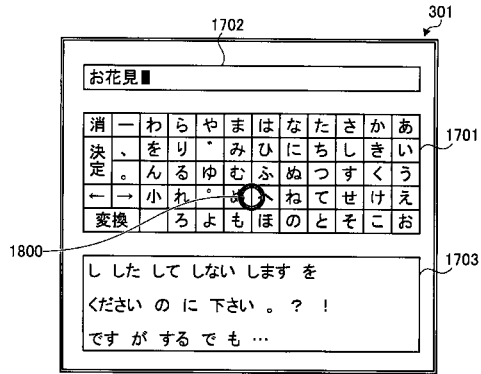 301
1702
お花見
消 ー わ ら や ま は な た さ か あ
決定 、 を り ゛ み ひ に ち し き い
。 ん る ゆ む ふ ぬ つ す く う
← → 小 れ ゜ め へ ね て せ け え
変換 ろ よ も ほ の と そ こ お
1701
1800
1703
し した して しない します を
ください の に 下さい 。 ? !
です が する で も …